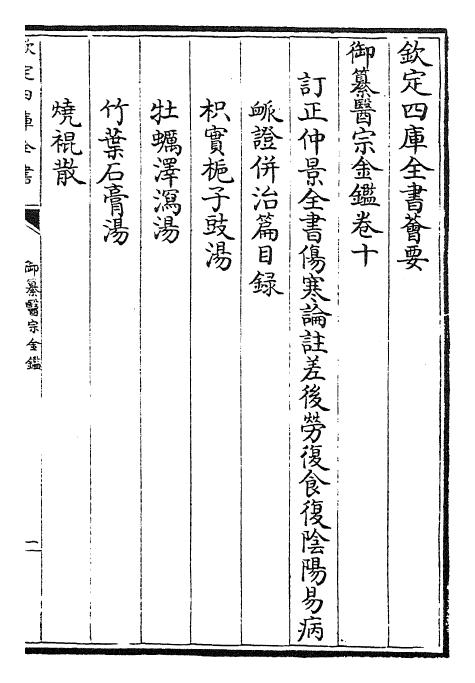 欽定四庫全書薈要
御纂醫宗金鑑卷十
訂正仲景全書傷寒論註差後勞復食復陰陽易病
脈證併治篇目録
枳實梔子豉湯
牡蠣澤瀉湯
竹葉石膏湯
燒裩散
欽定四庫全書
御纂醫宗金鑑
一